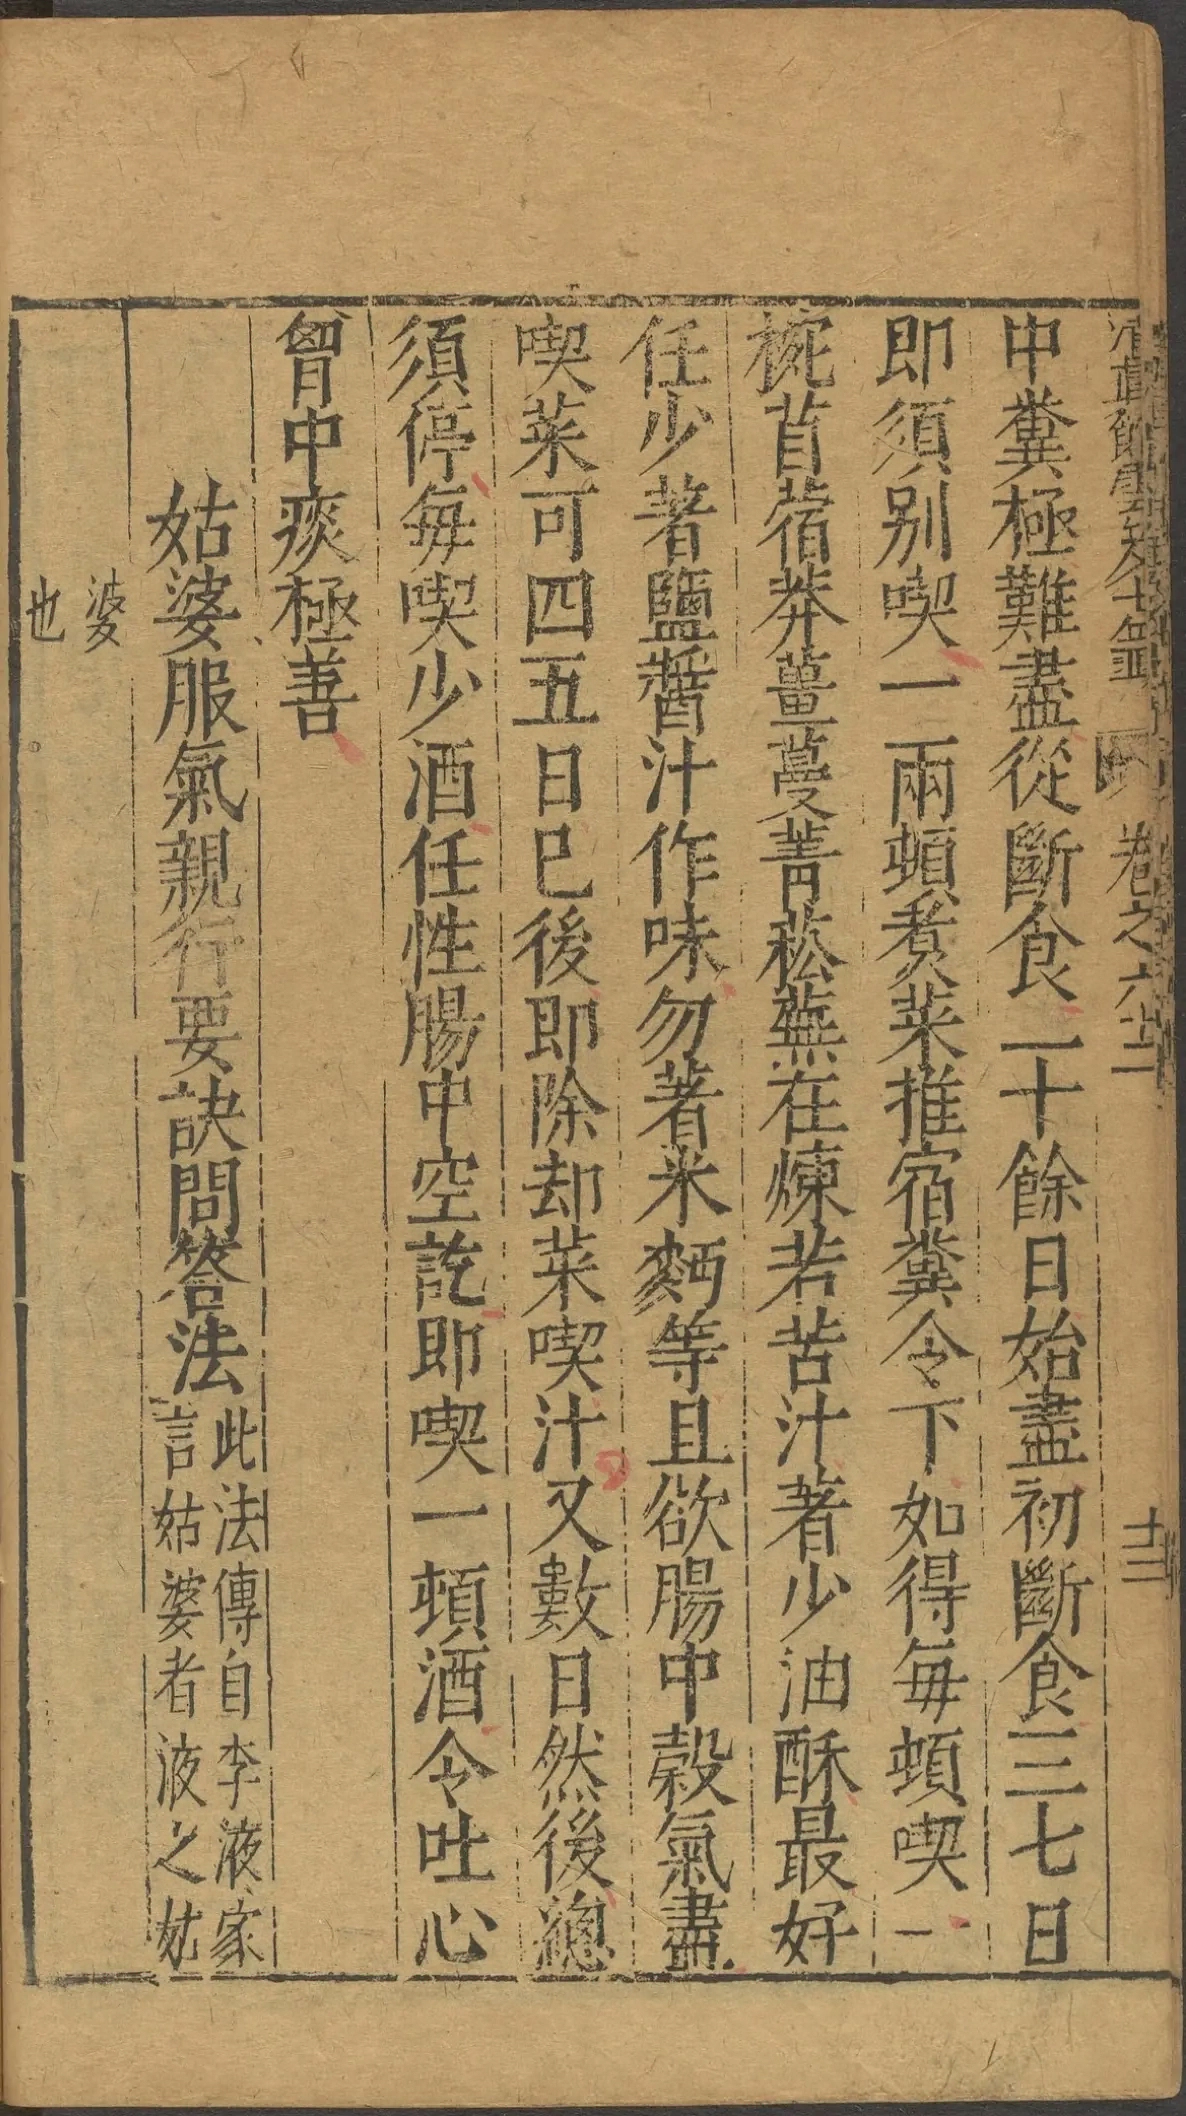 卷之六
十三
中糞極難盡從斷食二十餘日始盡初斷食三七日
即須别喫一兩頓煮菜推宿糞令下如得每頓喫一
椀苜蓿莽薑蔓菁菘蕪在煉若苦汁著少油酥最好
任少著鹽醬汁作味勿著米麪等且欲腸中穀氣盡
喫菜可四五日已後即除却菜喫汁又數日然後總
須停每喫少酒任性腸中空訖即喫一頓酒令吐心
胷中痰極善
姑婆服氣親行要訣問答法
此法傳自李液家
言姑婆者液之姑
婆
也